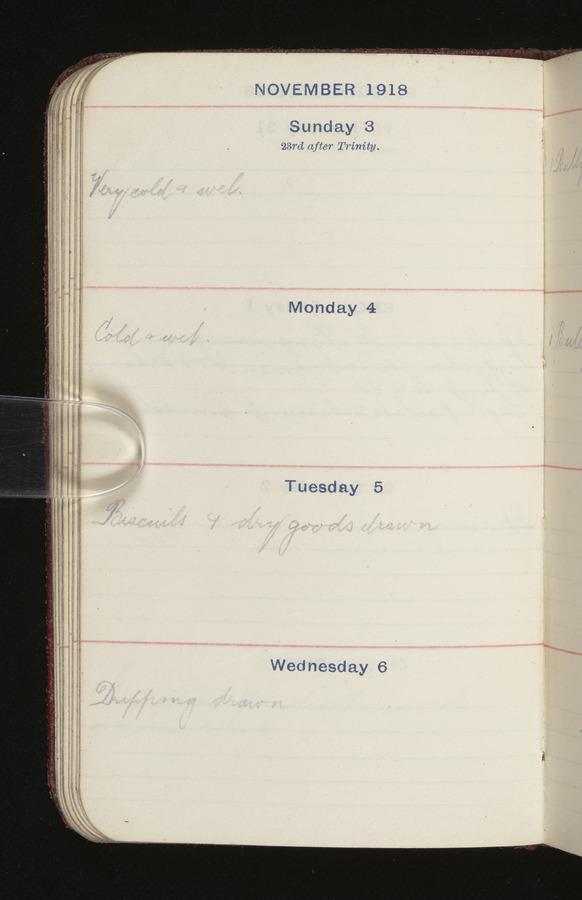 NOVEMBER 1918
Sunday 3
23rd after Trinity.
Very cold & wet.
Monday 4
Cold & wet.
Tuesday 5
Biscuits & dry goods drawn
Wednesday 6
Dripping drawn